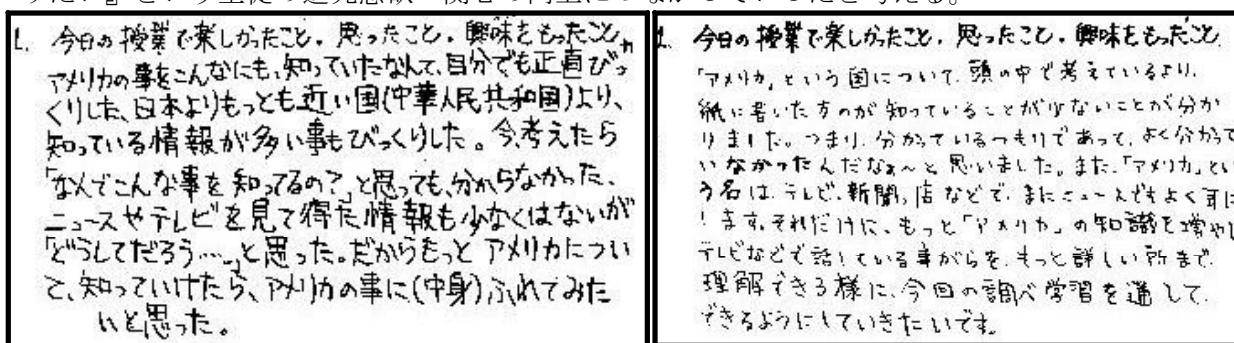 1. 今日の授業で楽しかったこと，思ったこと，興味をもったこと，
アメリカの事をこんなにも、知っていたなんて、自分でも正直びっ
くりした、日本よりもっとも近い国(中華人民共和国)より、
知っている情報が多い事もびっくりした。今考えたら
「なんでこんな事を知ってるの？」と思っても、分からなかった、
ニュースやテレビを見て得た情報も少なくはないが
「どうしてだろう…。」と思った。だからもっと アメリカについ
て、知っていけたら、アメリカの事に(中身)ふれてみた
いと思った。
1. 今日の授業で楽しかったこと，思ったこと，興味をもったこと
「アメリカ」という国について、頭の中で考えているより、
紙に書いた方のが知っていることが少ないことが分か
りました。つまり、分かっているつもりであって、よく分かって
いなかったんだなぁ～と思いました。また、「アメリカ」とい
う名は、テレビ、新聞、店などで、またニュースでもよく耳に
します。それだけに、もっと「アメリカ」の知識を増やし
テレビなどで話している事がらを、もっと詳しい所まで
理解できる様に、今回の調べ学習を通して、
できるようにしていきたいです。